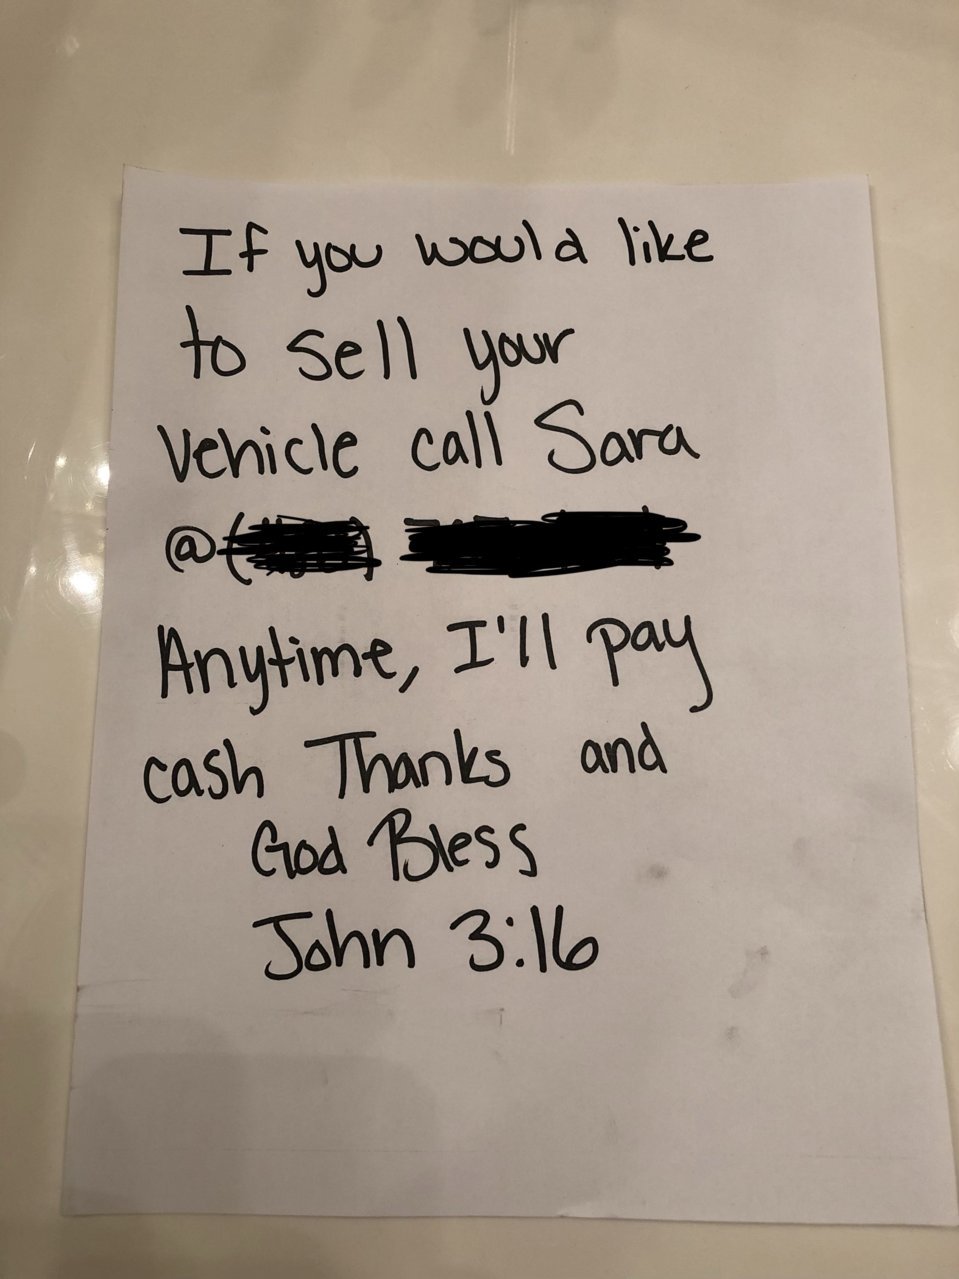 If you would like
to sell your
vehicle call Sara
@( )
Anytime, I'll pay
cash Thanks and
God Bless
John 3:16